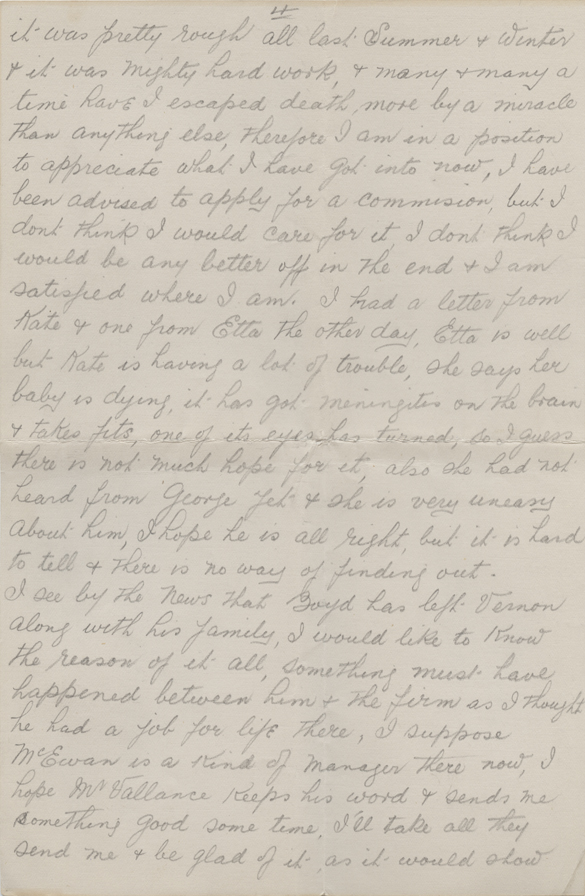 4
it was pretty rough all last Summer & Winter
& it was mighty hard work, & many & many a
time have I escaped death, more by a miracle
than anything else, therefore I am in a position
to appreciate what I have got into now, I have
been advised to apply for a commision, but I
dont think I would care for it, I dont think I
would be any better off in the end & I am
satisfied where I am. I had a letter from
Kate & one from Etta the other day, Etta is well
but Kate is having a lot of trouble, she says her
baby is dying, it has got meningites on the brain
& takes fits, one of its eyes has turned, so I guess
there is not much hope for it, also she had not
heard from George yet & she is very uneasy
about him, I hope he is all right, but it is hard
to tell & there is no way of finding out.
I see by the News that Boyd has left Vernon
along with his family, I would like to know
the reason of it all, something must have
happened between him & the firm as I thought
he had a job for life there, I suppose
McEwan is a kind of manager there now, I
hope Mr Vallance keeps his word & sends me
something good some time, I'll take all they
send me & be glad of it, as it would show